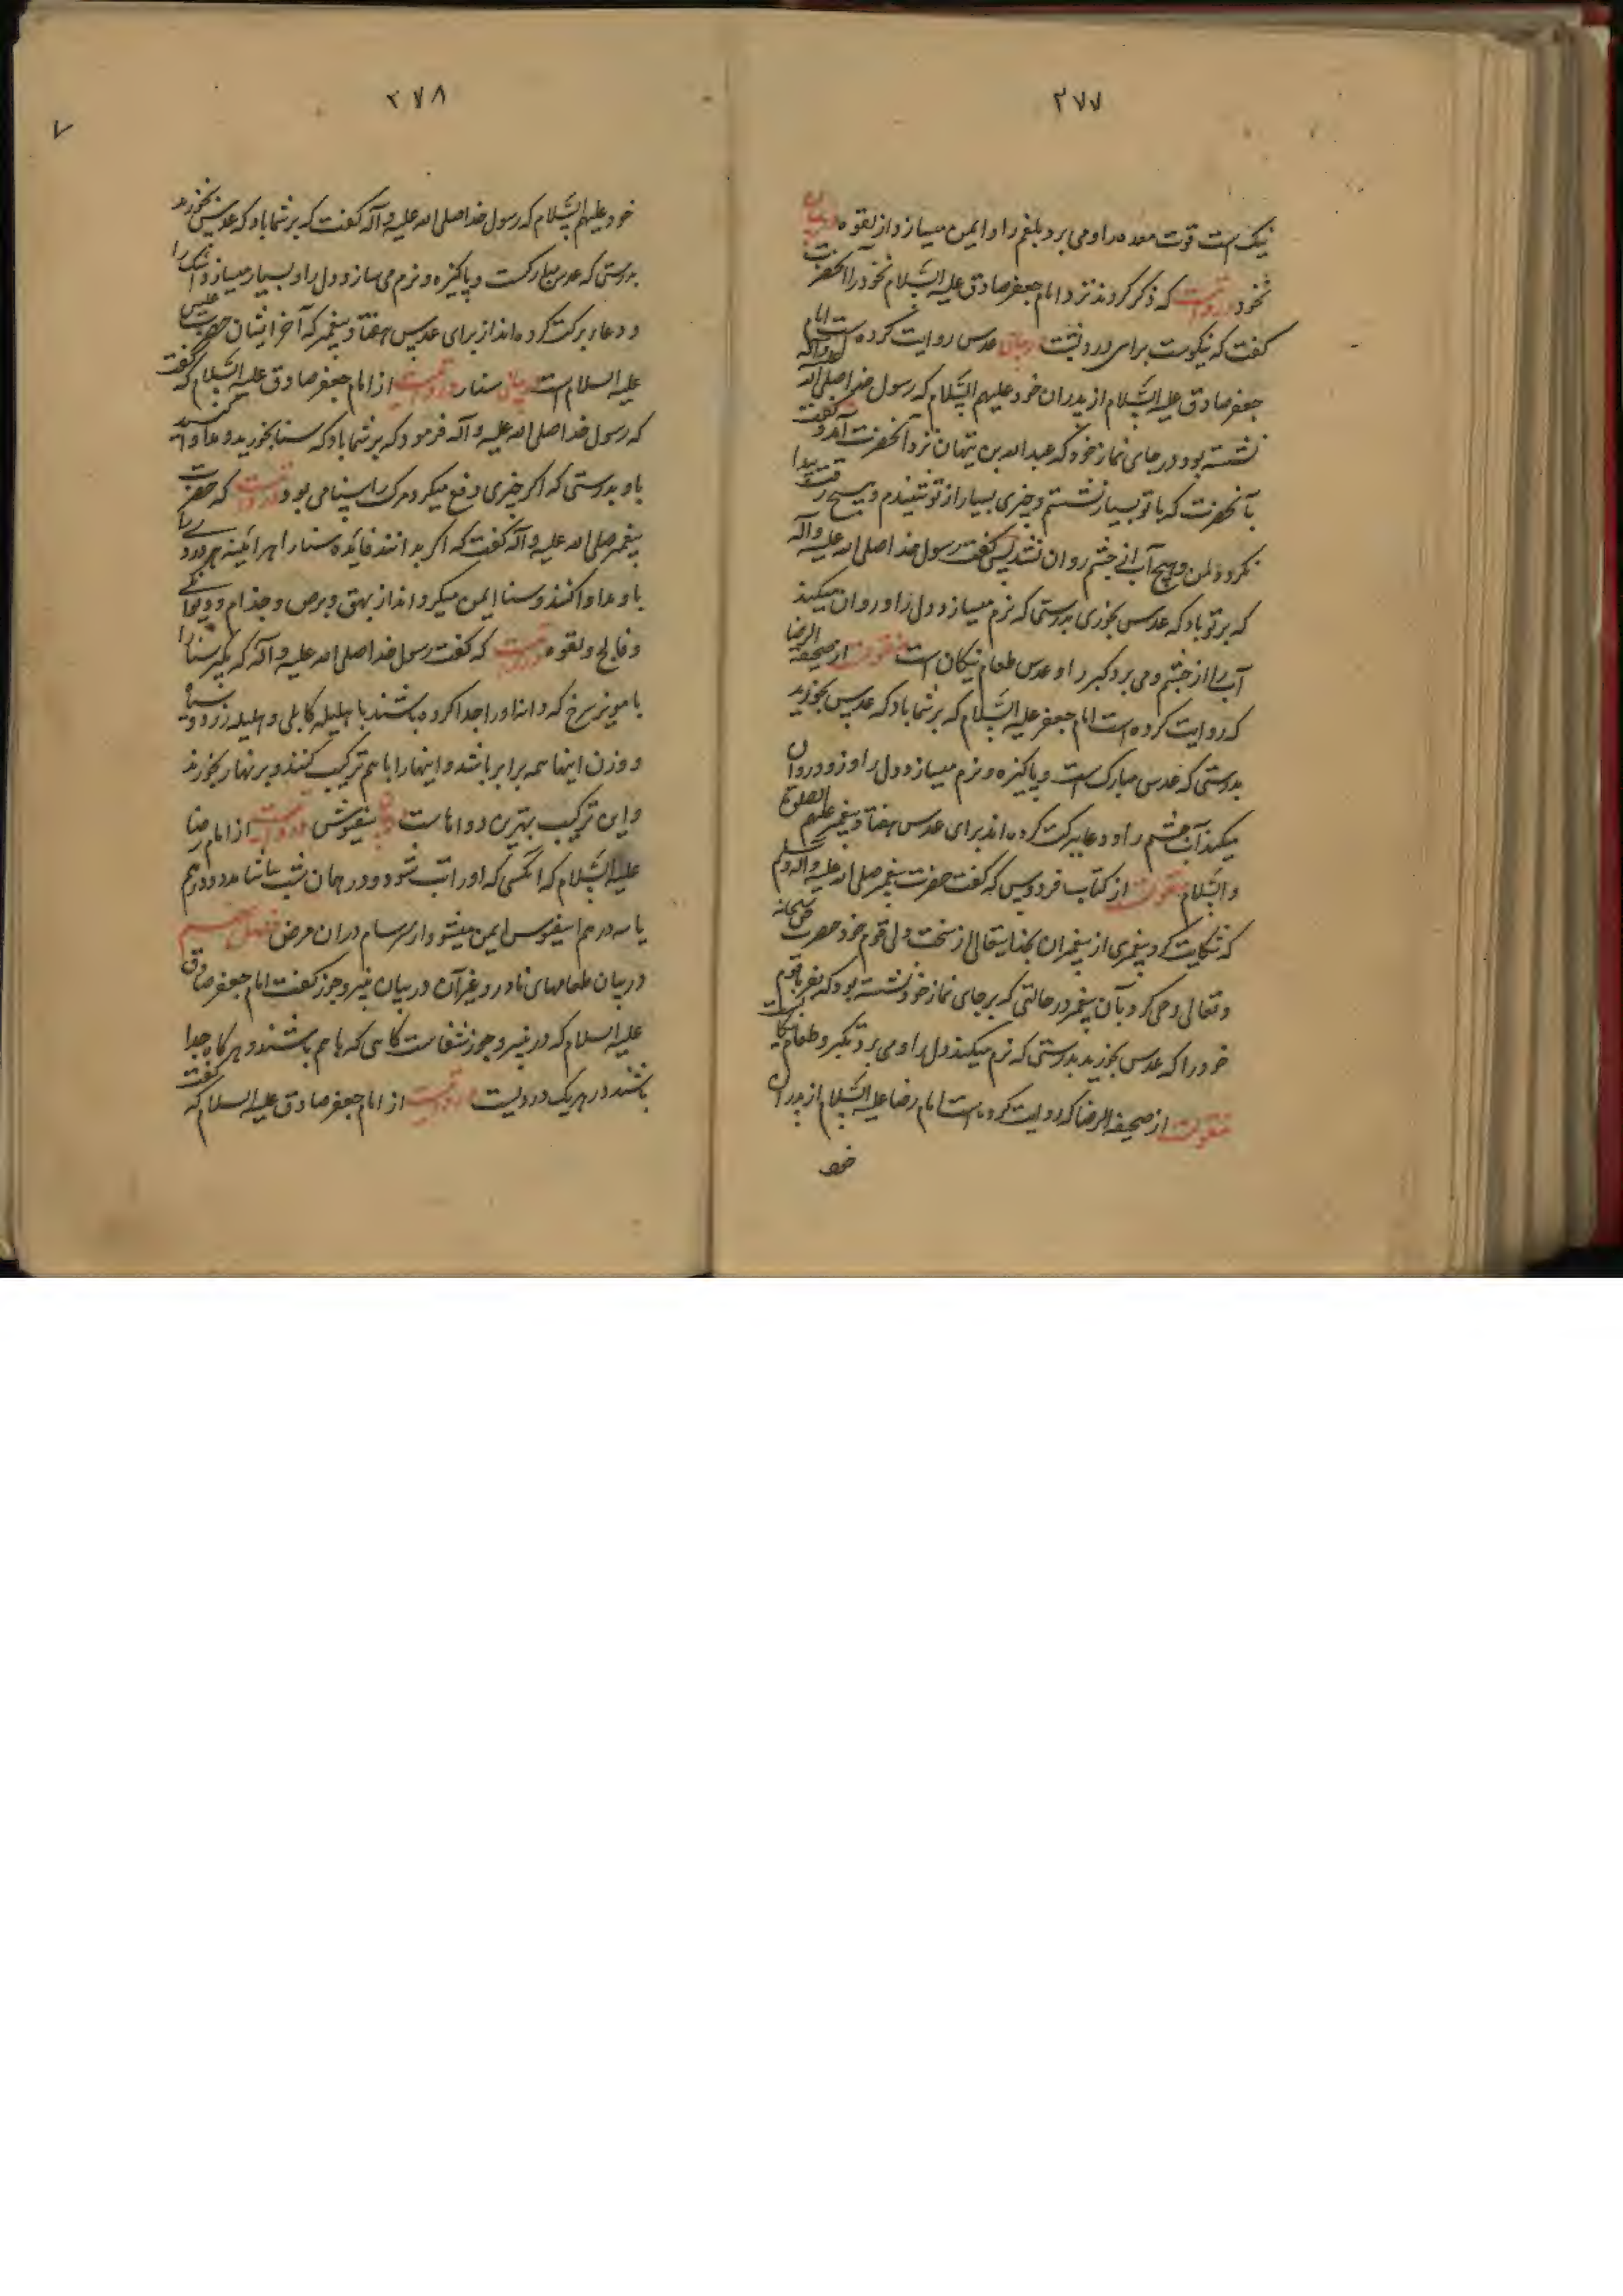 ۲۷۷
نیک است قوت معده را و می برد بلغم را و ایمن میسازد از لقوه در بیان
نخود در روایتست که ذکر کردند نزد امام جعفر صادق علیه السَّلام نخود را آنحضرت
گفت که نیکوست برای درد پشت در بیان عدس روایت کرده است امام
جعفر صادق علیه السَّلام از پدران خود علیهم السَّلام که رسول خدا صلی الله علیه وآله
نشسته بود در جای نماز خود که عبد الله بن تیهان نزد آنحضرت آمد و گفت
بآنحضرت که با تو بسیار نشستم و چیزی بسیار از تو شنیدم و هیچ رقت پیدا
نکرد دلمن و هیچ آب از چشم روان نشد پس گفت رسول خدا صلی الله علیه وآله
که بر تو باد که عدس بخوری بدرستی که نرم میسازد دل را و روان میکند
آب را از چشم و می برد کبر را و عدس طعام نیکان است منقولست از صحیفة الرضا
که روایت کرده است امام جعفر علیه السَّلام که بر شما باد که عدس بخورید
بدرستی که عدس مبارک است و پاکیزه و نرم میسازد دل را و زود روان
میکند آب چشم را و دعا ببرکت کرده اند برای عدس هفتاد پیغمبر علیهم الصلوة
والسَّلام منقولست از کتاب فردوس که گفت حضرت پیغمبر صلی الله علیه واله وسلم
که شکایت کرد پیغمبری از پیغمبران بخدایتعالی از سخت دلی قوم خود حضرت حق سبحانه
وتعالی وحی کرد بآن پیغمبر در حالتی که بر جای نماز خود نشسته بود که بفرما قوم
خود را که عدس بخورید بدرستی که نرم میکند دل را و می برد تکبر و طعام نیکانست
منقولست از صحیفه الرضا که روایت کرده است امام رضا علیه السَّلام از پدران
خود
۲۷۸
۷
خود علیهم السَّلام که رسول خدا صلی الله علیه وآله گفت که بر شما باد که عدس بخورید
بدرستی که عدس مبارکست و پاکیزه و نرم می سازد دل را و بسیار میسازد اشک را
و دعا ببرکت کرده اند از برای عدس هفتاد پیغمبر که آخر ایشان حضرت عیسی
علیه السلام است بیان سنا در روایتست از امام جعفر صادق علیه السَّلام که گفت
که رسول خدا صلی الله علیه وآله فرمود که بر شما باد که سنا بخورید و مداوا کنید
باو بدرستی که اگر چیزی دفع میکرد مرگ را سنا می بود در روایتست که حضرت
پیغمبر صلی الله علیه وآله گفت که اگر بدانند فایده سنا را هر آئینه هر دردی را
باو مداوا کنند و سنا ایمن میگرداند از بهق و برص و جذام و دیوانگی
و فالج و لقوه در روایتست که گفت رسول خدا صلی الله علیه وآله که بگیر سنا را
با مویز سرخ که دانه او را جدا کرده باشند با هلیله کابلی و هلیله زرد و سیاه
و وزن اینها همه برابر باشد و اینها را با هم ترکیب کنند و بر نهار بخورند
و این ترکیب بهترین دواهاست در بیان سیفوش در روایتست از امام رضا
علیه السَّلام که آنکسی که او را تب شود و در همان شب بیاشامد دو درهم
یا سه درهم اسیفوس ایمن میشود از سرسام در آن مرض فصل هشتم
در بیان طعامهای نادر و غیر آن در بیان پنیر و جوز گفت امام جعفر صادق
علیه السلام که در پنیر و جوز شفاست گاهی که با هم باشند و هر گاه جدا
باشند در هر یک دردیست در روایتست از امام جعفر صادق علیه السلام که گفت